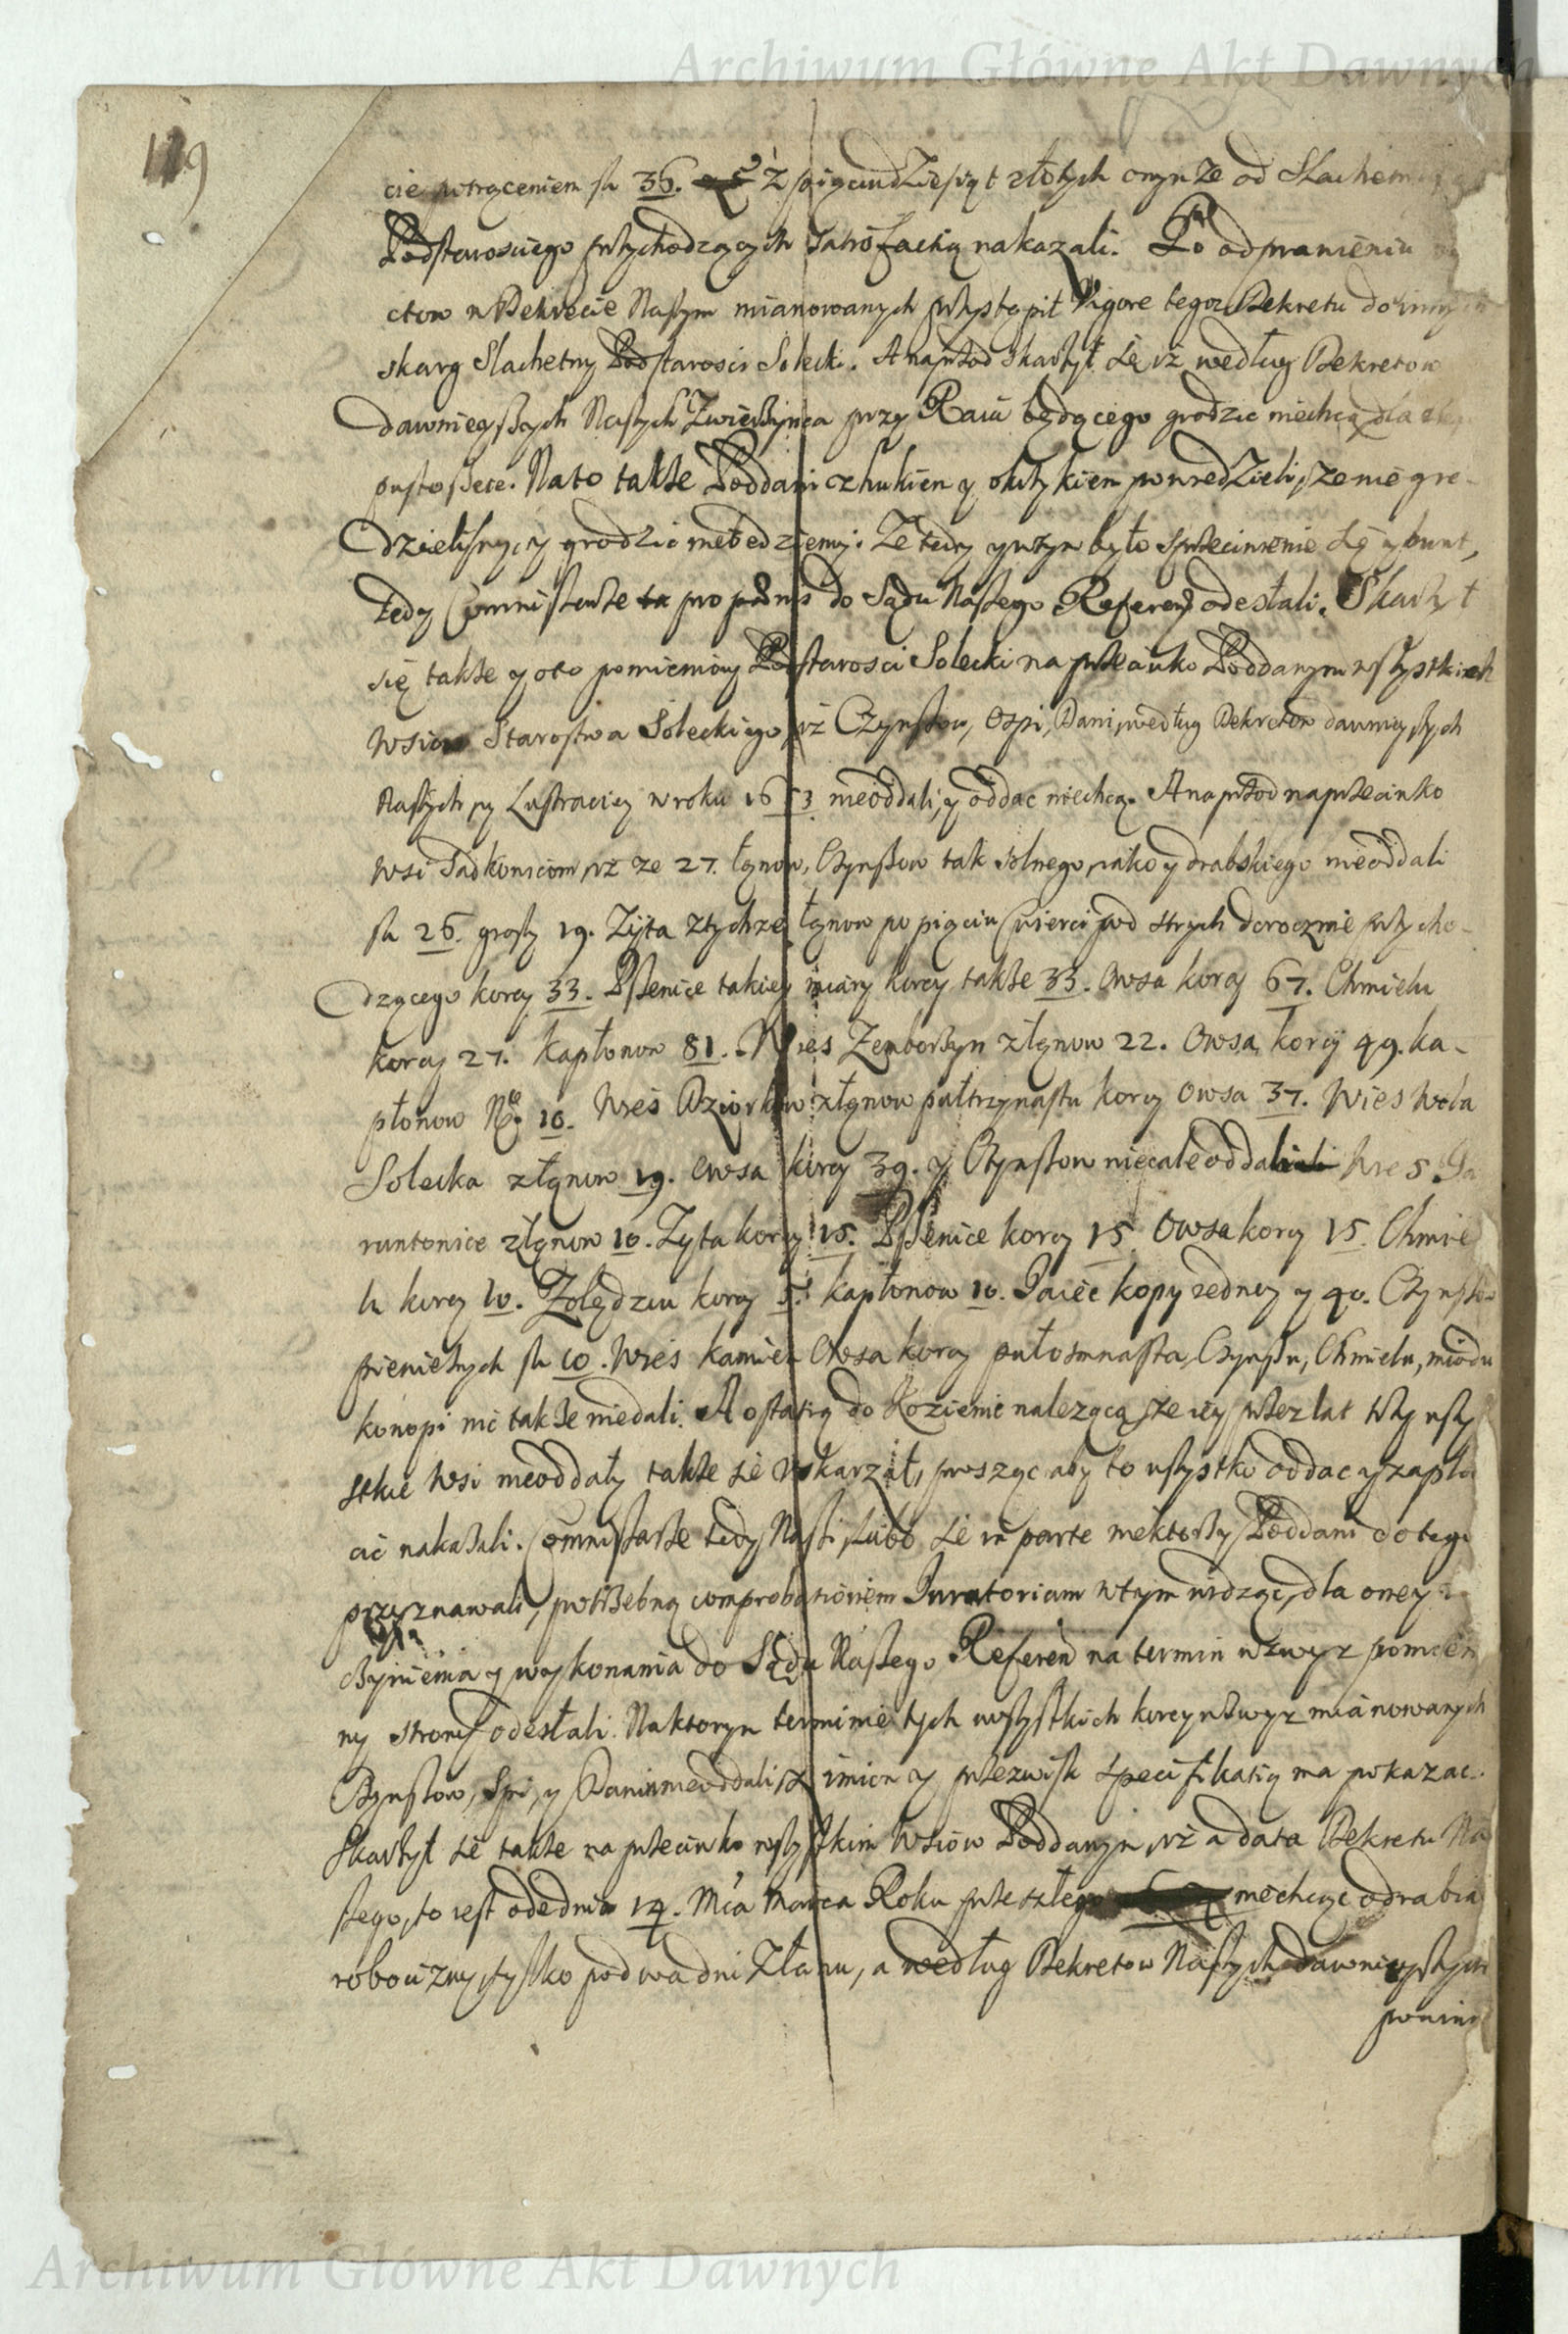 Archiwum Główne Akt Dawnych
119
cie potrąceniem fu 36. z piąciudziesiąt złotych onymze od Slachetn
Podstarosciego przychodzących satisfactią nakazali. Po odprawieniu
ctow w Dekrecie Naszym mianowanych przystąpił Vigore tegoz Dekretu do innych
skarg Slachetny Podstarosci Solecki. A naprzod skarżył się iż według Dekretow
dawnieyszych Naszych Zwierzynca przy Raiu będącego grodzic niechcą dla
pustoszece. Na to także Poddani z hukiem y okrzykiem powiedzieli, ze nie gro-
dzielismy, y grodzic niebedziemy. Ze tedy w tym było sprzeciwienie się y bunt,
tedy Commissarze pro poenis do Sądu Naszego Referend odesłali. Skarżył
się także y oto pomieniony Podstarosci Solecki na przeciwko Poddanym wszystkich
Wsiow Starostwa Soleckiego, iż Czynszow, Ospi, Dani, według Dekretow dawnieyszych
Naszych, y Lustraciey w roku 1653 nieoddali, y oddac niechcą. A naprzod naprzeciwko
Wsi Jadkowicom, iż ze 27. łąnow, Czynszow tak rolnego, iako y drabskiego nieoddali
fu 26. groszy 19. Zyta z tychże łąnow po piąciu Cwierci pod strych dorocznie przycho-
dzącego korcy 33. Pszenice takiey miary korcy także 33. Owsa korcy 67. Chmielu
korcy 27. kapłonow 81. Wies Zemborzyn z łąnow 22. Owsa korcy 49. ka-
płonow No 10. Wies Dziurkow z łąnow pułtrzynastu korcy Owsa 37. Wies Wola
Solecka z łąnow 19. Owsa korcy 39. y Czynszow niecale oddali Wies Ja
runtowice z łąnow 10. Zyta korcy 15. Pszenice korcy 15. Owsa korcy 15. Chmie
lu korcy 10. Zołędziu korcy 5. kapłonow 10. Jaiec kopy iedney y 40. Czynszow
pieniężnych fu 10. Wies kamień Owsa korcy pułosmnasta, Czynszu, Chmielu, miodu
konopi nic także niedali. A ostatią do Kozienic nalezącą, ze iey przez lat trzy wszy
stkie Wsi nieoddały także się uskarzał, prosząc aby to wszystko oddac y zapła
cić nakazali. Commissarze tedy Naszi, lubo się in parte niektorzy Poddani do tego
przyznawali, potrzebną comprobationem Juratoriam w tym widząc, dla oney
czynienia y wykonania do Sądu Naszego Referend na termin wzwyz pomien
ny strony odesłali. Na ktorym terminie tych wszystkich korcy wzwyz mianowanych
Czynszow, Spi, y Dani nieoddali z imion y przezwisk specifikatią ma pokazac.
Skarżył się także na przeciwko wszystkim Wsiow Poddanym, iż a data Dekretu Na
szego, to iest ode dnia 14. Mca Marca Roku przeszłego niechcąc odrabia
robocizny, tylko po dwa dni z łanu, a według Dekretow Naszych dawnieyszych
powinn
Archiwum Główne Akt Dawnych